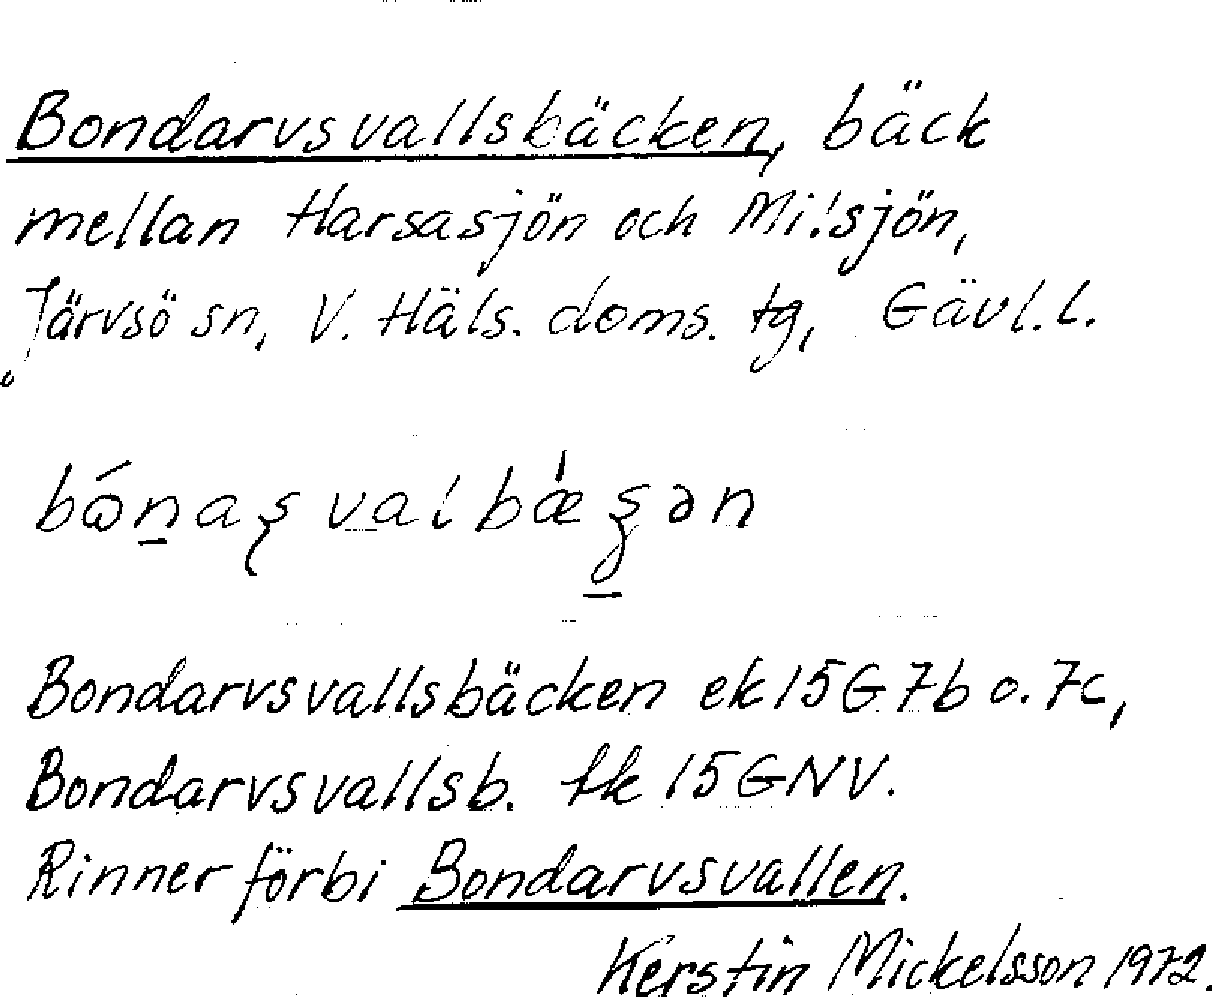 Bondarvsvallsbäcken, bäck
mellan Harsasjön och Milsjön,
Järvsö sn, V. Häls. doms. tg, Gävl. l.
Bondarvsvallsbäcken ek 15G 7b o. 7c,
Bondarvsvallsb. tk 15GNV.
Rinner förbi Bondarvsvallen.
Kerstin Mickelsson 1972.